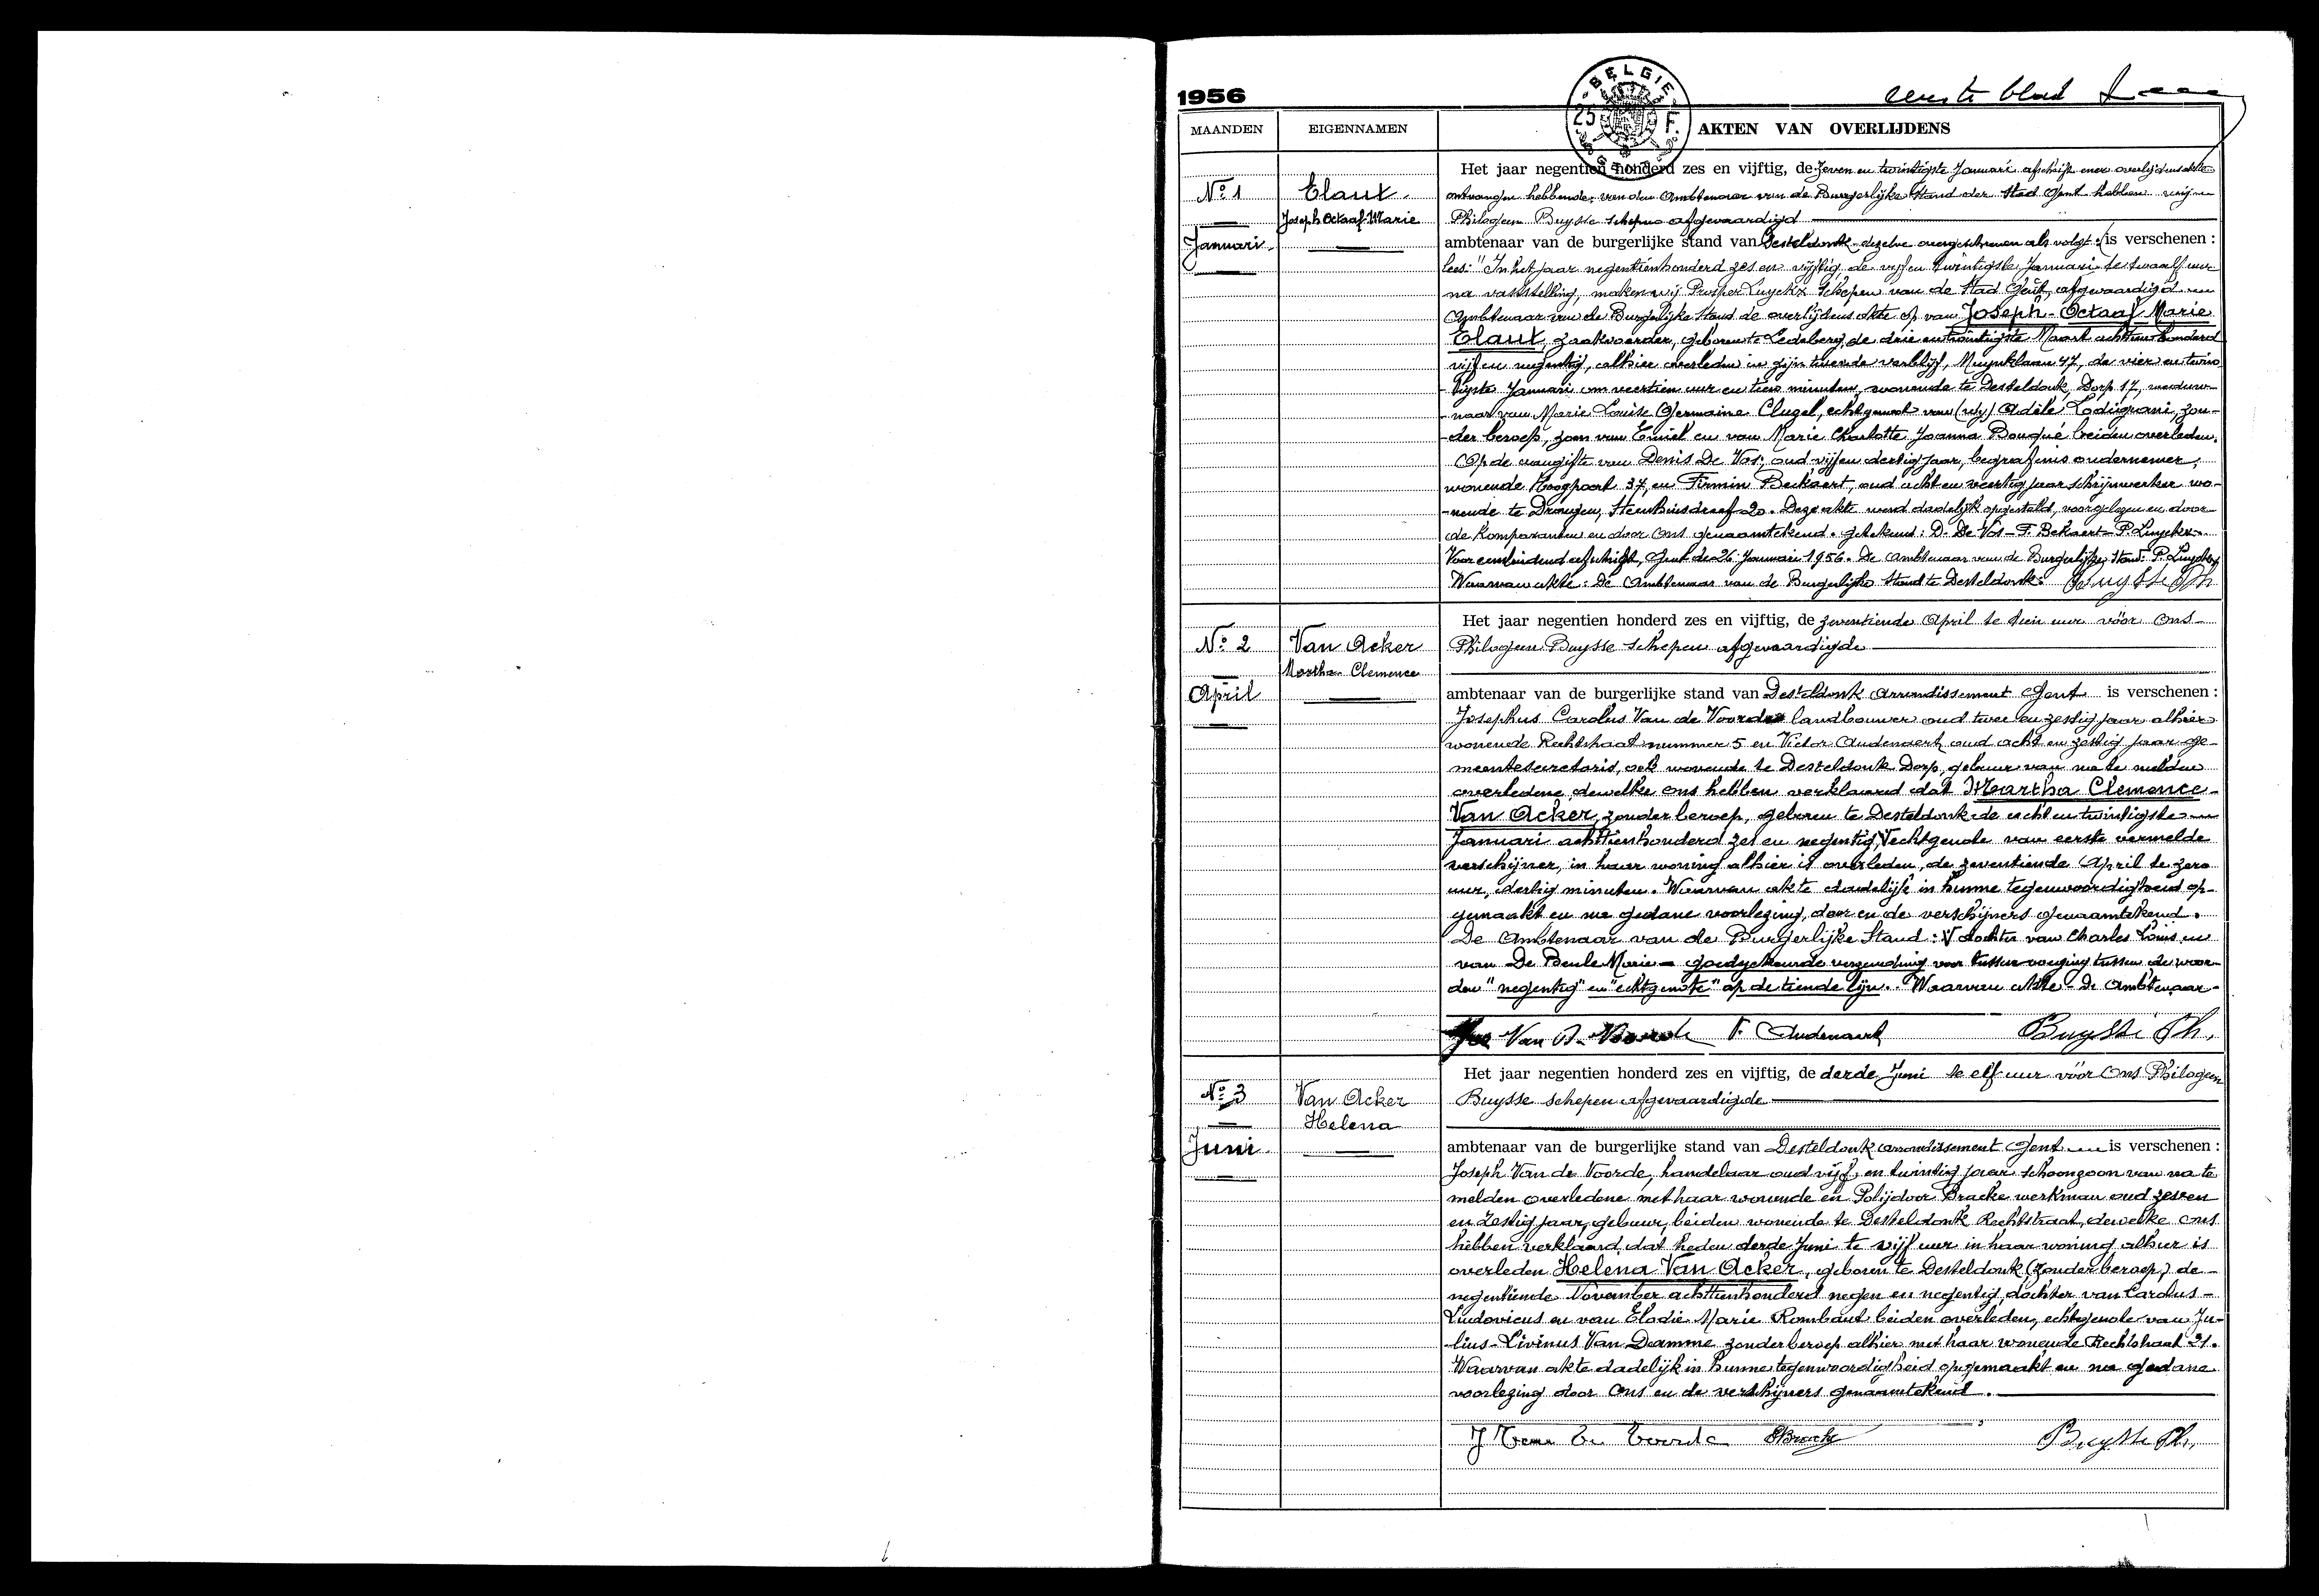 1956
eerste blad
BELGIE
25 F.
MAANDEN
EIGENNAMEN
AKTEN VAN OVERLIJDENS
No 1
Januari
Elaut
Joseph Octaaf Marie
Het jaar negentien honderd zes en vijftig, de zeven en twintigste Januari afschrift ener overlijdensakte
ontvangen hebbende, van den Ambtenaar van de Burgerlijke Stand der Stad Gent hebben wij
Philogeen Buysse schepen afgevaardigd
ambtenaar van de burgerlijke stand van Desteldonk dezelve overgeschreven als volgt: is verschenen :
lees: "In het jaar negentienhonderd zes en vijftig, de vijf en twintigste Januari te twaalf uur
na vaststelling, maken wij Prosper Luyckx Schepen van de Stad Gent, afgevaardigd
Ambtenaar van de Burgerlijke Stand de overlijdens akte op van Joseph-Octaaf Marie
Elaut, zaakvoerder, geboren te Ledeberg, de drie en twintigste Maart achttien honderd
vijf en negentig, alhier overleden in zijn tweede verblijf, Muynklaan 47, de vier en twin-
tigste Januari om veertien uur en tien minuten, wonende te Desteldonk, Dorp 17, weduw-
naar van Marie Louise Germaine Clugel, echtgenoot van Adèle Lodigiani, zon-
der beroep, zoon van Emiel en van Marie Charlotte Joanna Bouqué beiden overleden.
Op de aangifte van Denis De Vos, oud vijf en dertig jaar, begrafenis ondernemer,
wonende Hoogpoort 37, en Firmin Beckaert, oud acht en veertig jaar schrijnwerker wo-
nende te Drongen, Steenhuisdreef 20. Deze akte werd dadelijk opgesteld, voorgelezen en door
de komparanten en door Ons genaamtekend. getekend: D. De Vos - F. Bekaert - P. Luyckx
Voor eensluidend afschrift, Gent de 26 Januari 1956. De Ambtenaar van de Burgerlijke Stand: P. Luyckx
Waarvan akte: De Ambtenaar van de Burgerlijke Stand te Desteldonk: Buysse Ph
No 2
April
Van Acker
Martha Clemence
Het jaar negentien honderd zes en vijftig, de zeventiende April te tien uur vóór Ons
Philogeen Buysse schepen afgevaardigde
ambtenaar van de burgerlijke stand van Desteldonk arrondissement Gent is verschenen :
Josephus Carolus Van de Voorde landbouwer oud twee en zestig jaar alhier
wonende Rechtstraat nummer 5 en Victor Audenaert oud acht en zestig jaar ge-
meentesecretaris, ook wonende te Desteldonk Dorp, gebuur van na te melden
overledene, dewelke Ons hebben verklaard dat Martha Clemence
Van Acker, zonder beroep, geboren te Desteldonk de acht en twintigste
Januari achttienhonderd zes en negentig, V echtgenote van eerste vermelde
verschijner, in haar woning alhier is overleden, de zeventiende April te zero
uur, dertig minuten. Waarvan akte dadelijk in hunne tegenwoordigheid op-
gemaakt en na gedane voorlezing, door en de verschijners genaamtekend.
De Ambtenaar van de Burgerlijke Stand: V dochter van Charles Louis en
van De Beule Marie - goedgekeurde verzending voor tussenvoeging tussen de woor-
den "negentig" en "echtgenote" op de tiende lijn. Waarvan akte - De Ambtenaar
Jos Van D. Voorde V. Audenaert Buysse Ph.
No 3
Juni
Van Acker
Helena
Het jaar negentien honderd zes en vijftig, de derde Juni te elf uur vóór Ons Philogeen
Buysse schepen afgevaardigde
ambtenaar van de burgerlijke stand van Desteldonk arrondissement Gent is verschenen :
Joseph Van de Voorde, handelaar oud vijf en twintig jaar schoonzoon van na te
melden overledene met haar wonende en Polijdoor Bracke werkman oud zeven
en zestig jaar, gebuur, beiden wonende te Desteldonk Rechtstraat, dewelke Ons
hebben verklaard, dat heden derde Juni te vijf uur in haar woning alhier is
overleden Helena Van Acker, geboren te Desteldonk (zonder beroep) de
negentiende November achttienhonderd negen en negentig, dochter van Carolus
Ludovicus en van Elodie Marie Rombaut beiden overleden, echtgenote van Ju-
lius-Livinus Van Damme zonder beroep alhier met haar wonende Rechtstraat 21.
Waarvan akte dadelijk in hunne tegenwoordigheid opgemaakt en na gedane
voorlezing door Ons en de verschijners genaamtekend.
J Van de Voorde Bracke Buysse Ph.